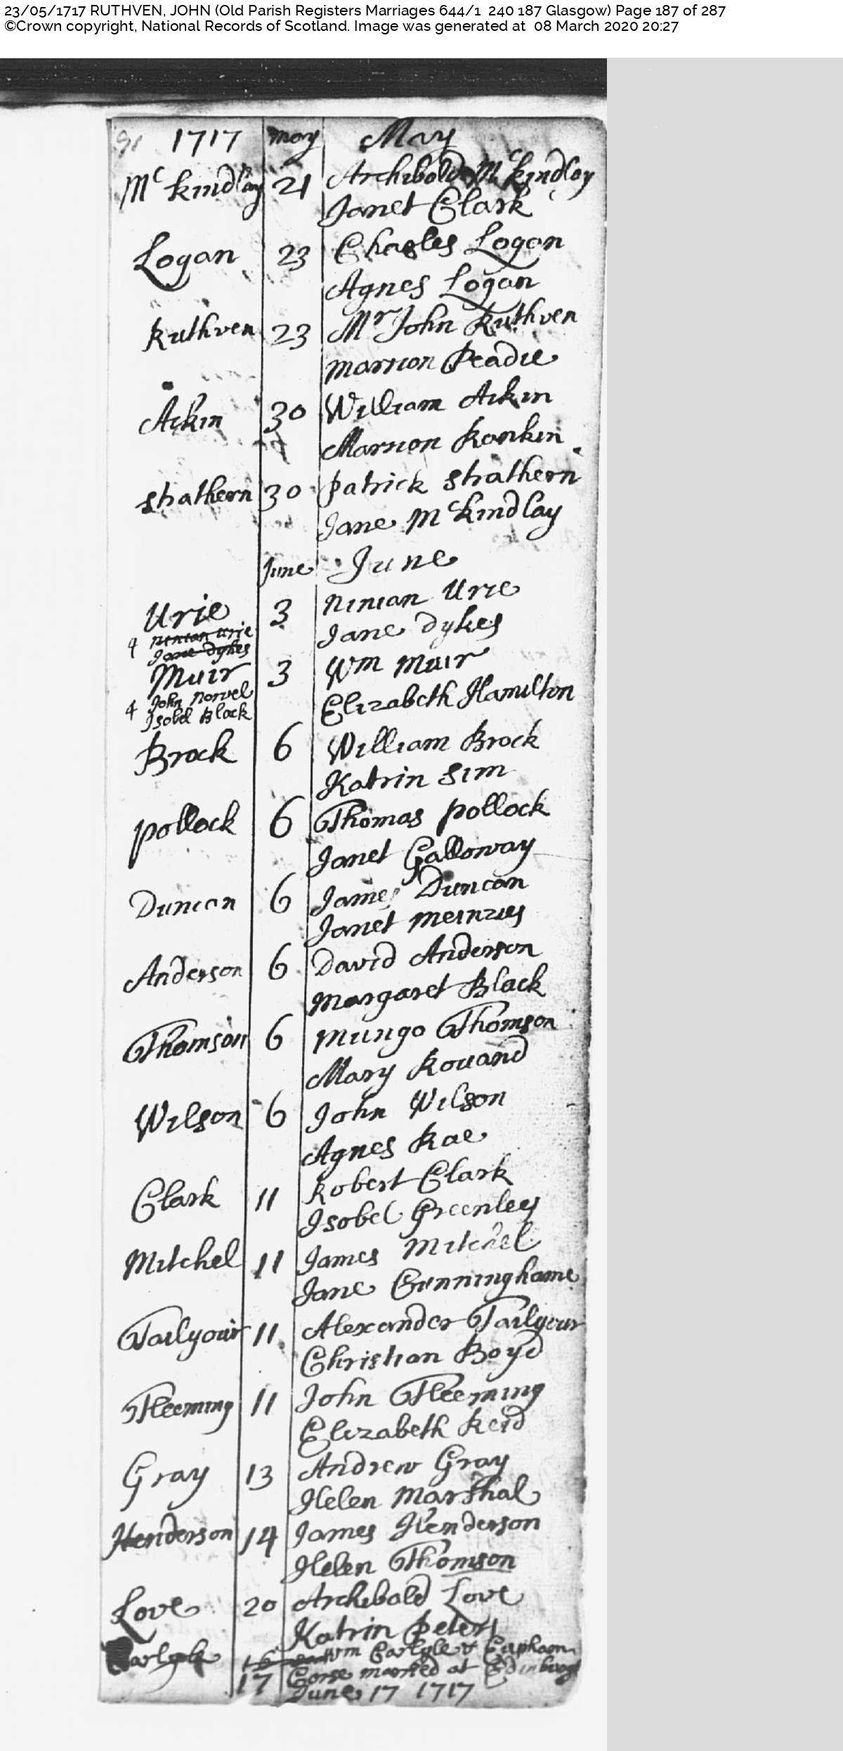 23/05/1717 RUTHVEN, JOHN (Old Parish Registers Marriages 644/1 240 187 Glasgow) Page 187 of 287
©Crown copyright, National Records of Scotland. Image was generated at 08 March 2020 20:27
91 1717 may May
Mc kindlay 21 Archibald Mc kindlay
Janet Clark
Logan 23 Charles Logan
Agnes Logan
Ruthven 23 Mr John Ruthven
marrion Peadie
Aikin 30 William Aikin
Marrion Rankin
strathern 30 patrick strathern
Jane Mc kindlay
June June
Urie 3 ninian Urie
4 ninian Urie Jane dykes
Jane dykes
Muir 3 Wm muir
4 John Norvel Elizabeth Hamilton
Isobel Black
Brock 6 William Brock
Katrin sim
pollock 6 Thomas pollock
Janet Galloway
Duncan 6 James Duncan
Janet meinzies
Anderson 6 David Anderson
Margaret Black
Thomson 6 mungo Thomson
Mary Rouand
Wilson 6 John Wilson
Agnes Rae
Clark 11 Robert Clark
Isobel Greenlees
Mitchel 11 James Mitchel
Jane Cunninghame
Tailyour 11 Alexander Tailyour
Christian Boyd
Fleeming 11 John Fleeming
Elizabeth Reid
Gray 13 Andrew Gray
Helen Marshal
Henderson 14 James Henderson
Helen Thomson
Love 20 Archibald Love
Katrin Peters
Carlyle 16 Wm Carlyle & Eupham
17 Corse married at Edinburgh
June 17 1717